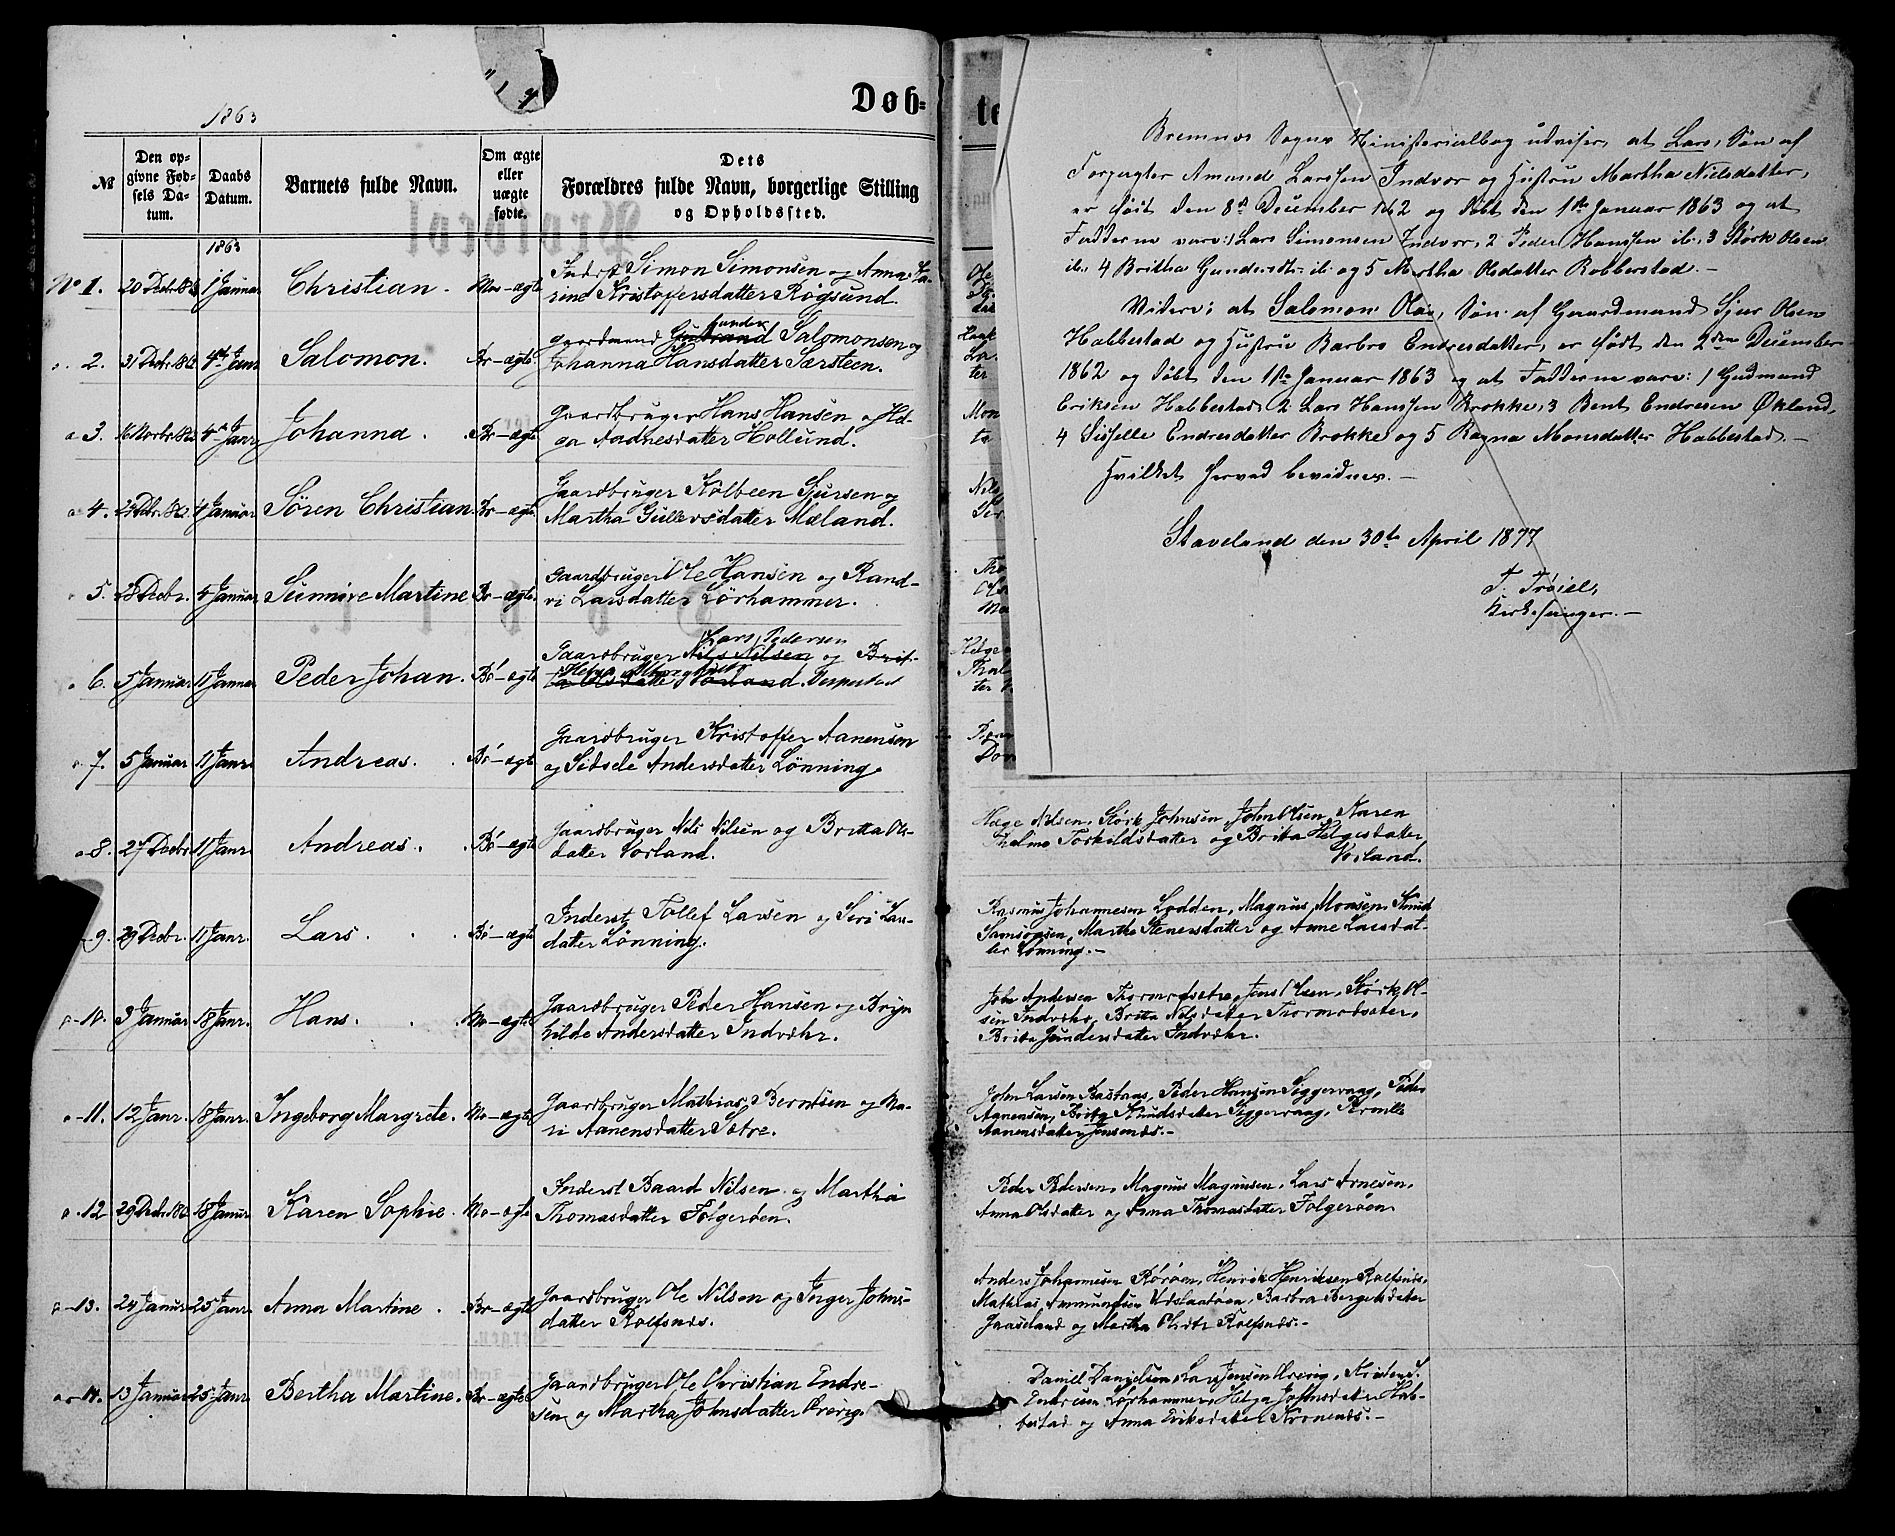 Døb=
1863
№
Den op-
givne Fød-
sels Da-
tum.
Daabs
Datum.
Barnets fulde Navn.
Om ægte
eller
uægte
fødte.
Dets
Forældres fulde Navn, borgerlige Stilling
og Opholdssted.
1863
No 1. 20 Decbr. 1862 1 Januar Christian. Mos-ægte Inderst Simon Simonsen og Anna Ka-
rine Kristoffersdatter Røgsund.
2. 31 Decbr. 1862 4de Janr Salomon. Br-ægte Gaardmand Gunder Salomonsen og
Johanna Hansdatter Sørsteen.
3. 16 Novbr. 1862 4de Janr Johanna. Br-ægte Gaardbruger Hans Hansen og Hel-
ga Aadnesdatter Hollund.
4. Decbr. 4 Januar Søren Christian. Br-ægte Gaardbruger Kolbeen Sjursen og
Martha Gullevsdatter Mæland.
5. 28 Decbr. 4 Januar Sunnive Martine Br-ægte. Gaardbruger Ole Hansen og Rand-
vi Larsdatter Lørhammer.
Lars Pedersen
6. 5 Januar 11 Januar Peder Johan. Br-ægte Gaardbruger Nils Nilsen og Brit-
ta Olsdatter Vorland. Vespestad
7. 5 Januar 11 Janr. Andreas. Br-ægte Gaardbruger Kristoffer Aanensen
og Sidsele Andersdatter Lønning.
8. 27 Decbr. 11 Janr. Andreas. Br-ægte Gaardbruger Nils Nilsen og Britta Ols-
datter Vorland.
9. 29 Decbr. 11 Janr. Lars. Br-ægte Inderst Tollef Larsen og Siri Lars-
datter Lønning.
10. 3 Januar 18 Janr. Hans. Mo-ægte Gaardbruger Peder Hansen og Bryn
hilde Andersdatter Indvæhr.
11. 12 Janr. 18 Janr. Ingeborg Margrete. Mo-ægte Gaardbruger Mathias Berntsen og Ma-
ri Aanensdatter Sætre.
12 29 Decbr. 1862 18 Januar Karen Sophie. Mo-ægte Inderst Baard Nilsen og Martha
Thomasdatter Folgerøen.
13. 24 Januar 25 Janr. Anna Martine. Br-ægte Gaardbruger Ole Nilsen og Inger Johns-
datter Rolfsnæs.
14. 13 Januar 25 Janr. Bertha Martine. Br-ægte Gaardbruger Ole Christian Endre-
sen og Martha Johnsdatter
Bremnes Sogns Ministerialbog udviser, at Lars, Søn af
Forpagter Amund Larssen Indvær og Hustru Martha Nielsdatter,
er født den 8de December 1862 og døbt den 1ste Januar 1863 og at
Fadderne vare: 1 Lars Simonsen Indvær, 2 Peder Hanssen ib., 3 Størk Olsen
ib. 4 Britha Gundersdtr. ib. og 5 Martha Olsdatter Robberstad. -
Videre: at Salomon Olai, Søn af Gaardmand Sjur Olsen
Habbestad og Hustru Barbro Endresdatter, er født den 2den December
1862 og døbt den 1ste Januar 1863 og at Fadderne vare: 1 Gudmund
Eriksen Habbestad 2 Lars Hanssen Brokke, 3 Bent Endresen Økland,
4 Sisselle Endresdatter Brokke og 5 Ragna Monsdatter Habbestad. -
Hvilket herved bevidnes. -
Staveland den 30te April 1877
T. Trøiel,
Kirkesanger. -
Helge Nilsen, Størk Johnsen, John Olsen, Karen
Thalmo Torkildsdatter og Brita Helgesdatter
Vorland.
Rasmus Johannesen Lodden, Magnus Monsen, Knud
Samsonsen, Martha Stenersdatter og Anne Larsdat-
ter Lønning. -
John Andersen Jens Olsen, Størk Ol-
sen Indvæhr, Britta Nilsdatter
Brita Gundersdatter Indvæhr.
John Larsen Rastnæs, Peder Hansen Siggervaag, Peder
Aanensen, Brita Knudsdatter Siggervaag, Pernille
Aanensdatter Jensenæs. -
Peder Pedersen, Magnus Magnusen, Lars Arnesen,
Anna Olsdatter og Anna Thomasdatter Folgerøen.
Anders Johannesen Rørøen, Henrik Henriksen Rolfsnæs,
Mathias Ammundsen Barbra Bergesdatter
Gaaseland og Martha Olsdtr Rolfsnæs. -
Daniel Danielsen, Lars Jensen
Endresen Lørhammer, Helga Johnsdatter Hab-
bestad og Anna Eriksdatter